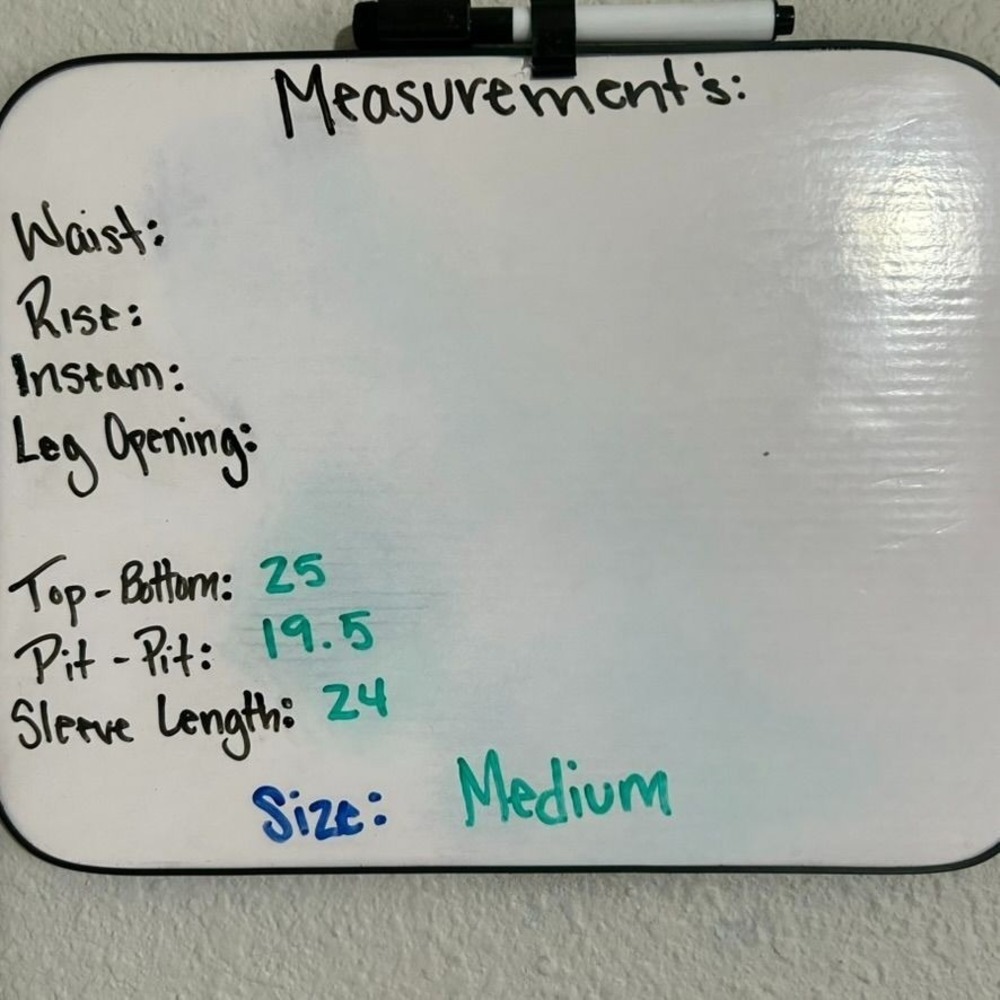 Measurement's:
Waist:
Rise:
Inseam:
Leg Opening:
Top-Bottom: 25
Pit-Pit: 19.5
Sleeve Length: 24
Size: Medium